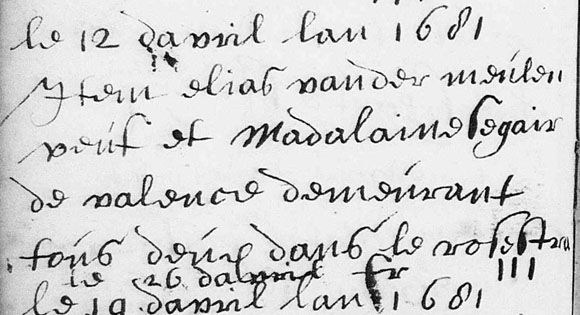 le 12 davril lan 1681
Item elias vander meulen
veuf et Madalaine segair
de valence demeurant
tous deux dans le rosestra
le 26 davril fr III
le 19 davril lan 1681